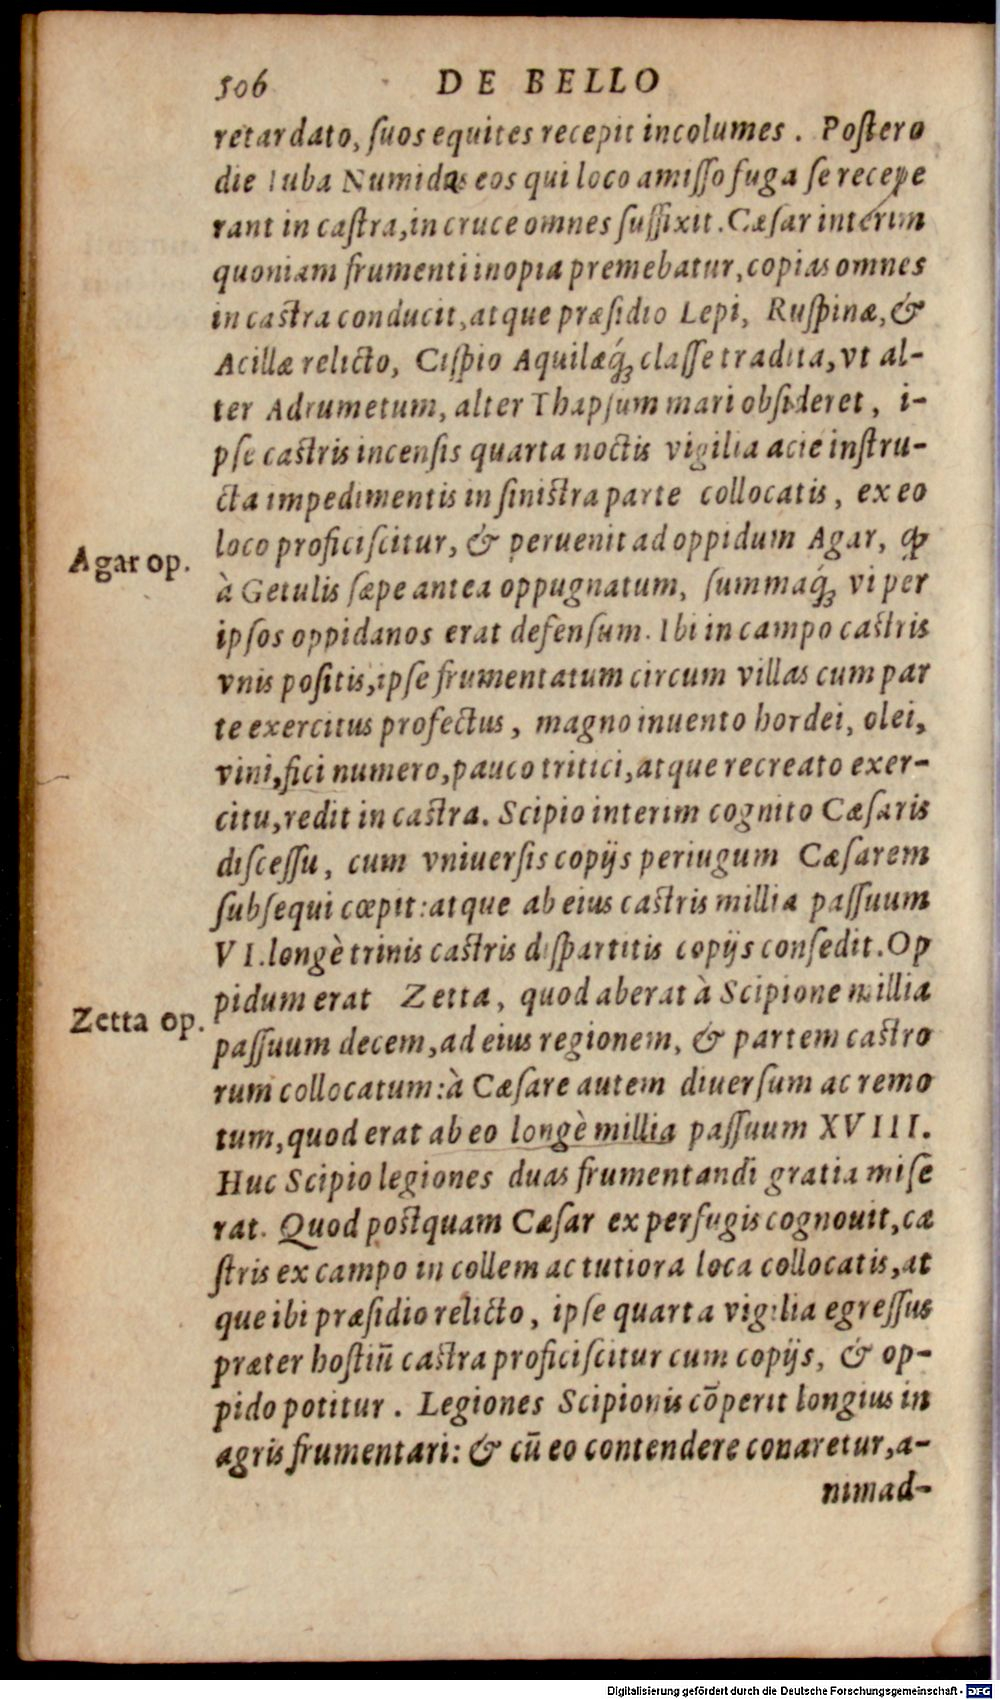 506 DE BELLO
retardato, ſuos equites recepit incolumes. Poſtero
die Iuba Numidas eos qui loco amiſſo fuga ſe recepe
rant in caſtra, in cruce omnes ſuffixit. Cæſar interim
quoniam frumenti inopia premebatur, copias omnes
in caſtra conducit, atque præſidio Lepi, Ruſpinæ, &
Acillæ relicto, Ciſpio Aquilæq́; claſſe tradita, vt al-
ter Adrumetum, alter Thapſum mari obſideret, i-
pſe caſtris incenſis quarta noctis vigilia acie inſtru-
cta impedimentis in ſiniſtra parte collocatis, ex eo
loco proficiſcitur, & peruenit ad oppidum Agar, ꝙ
Agar op.
à Getulis ſæpe antea oppugnatum, ſummaq́; vi per
ipſos oppidanos erat defenſum. Ibi in campo caſtris
vnis poſitis, ipſe frumentatum circum villas cum par
te exercitus profectus, magno inuento hordei, olei,
vini, fici numero, pauco tritici, atque recreato exer-
citu, redit in caſtra. Scipio interim cognito Cæſaris
diſceſſu, cum vniuerſis copijs per iugum Cæſarem
ſubſequi cœpit: atque ab eius caſtris millia paſſuum
VI. longè trinis caſtris diſpartitis copijs conſedit. Op
pidum erat Zetta, quod aberat à Scipione millia
Zetta op.
paſſuum decem, ad eius regionem, & partem caſtro
rum collocatum: à Cæſare autem diuerſum ac remo
tum, quod erat ab eo longè millia paſſuum XVIII.
Huc Scipio legiones duas frumentandi gratia miſe
rat. Quod poſtquam Cæſar ex perfugis cognouit, ca
ſtris ex campo in collem ac tutiora loca collocatis, at
que ibi præſidio relicto, ipſe quarta vigilia egreſſus
præter hoſtiū caſtra proficiſcitur cum copijs, & op-
pido potitur. Legiones Scipionis cōperit longius in
agris frumentari: & cū eo contendere conaretur, a-
nimad-
Digitalisierung gefördert durch die Deutsche Forschungsgemeinschaft - DFG